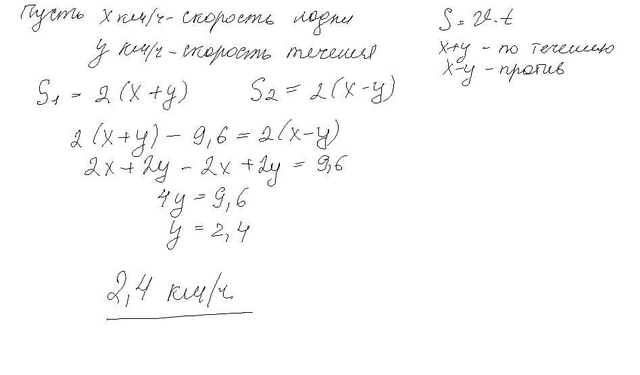 Пусть x км/ч - скорость лодки
y км/ч - скорость течения
S = v·t
x+y - по течению
x-y - против
S₁ = 2(x+y) S₂ = 2(x-y)
2(x+y) - 9,6 = 2(x-y)
2x+2y - 2x+2y = 9,6
4y = 9,6
y = 2,4
2,4 км/ч